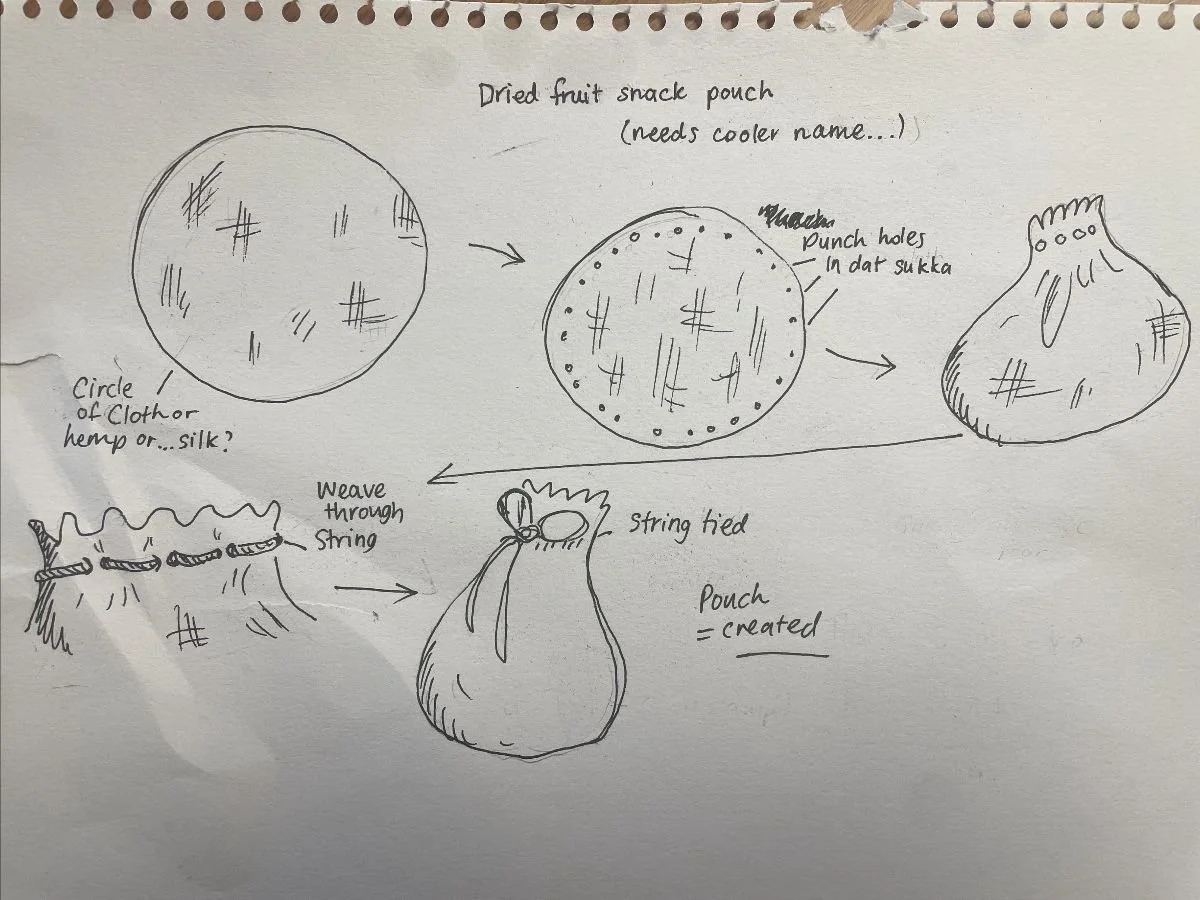 Dried fruit snack pouch
(needs cooler name...)
Punch holes
in dat sukka
Circle
of Cloth or
hemp or...silk?
Weave
through
String
String tied
Pouch
= created